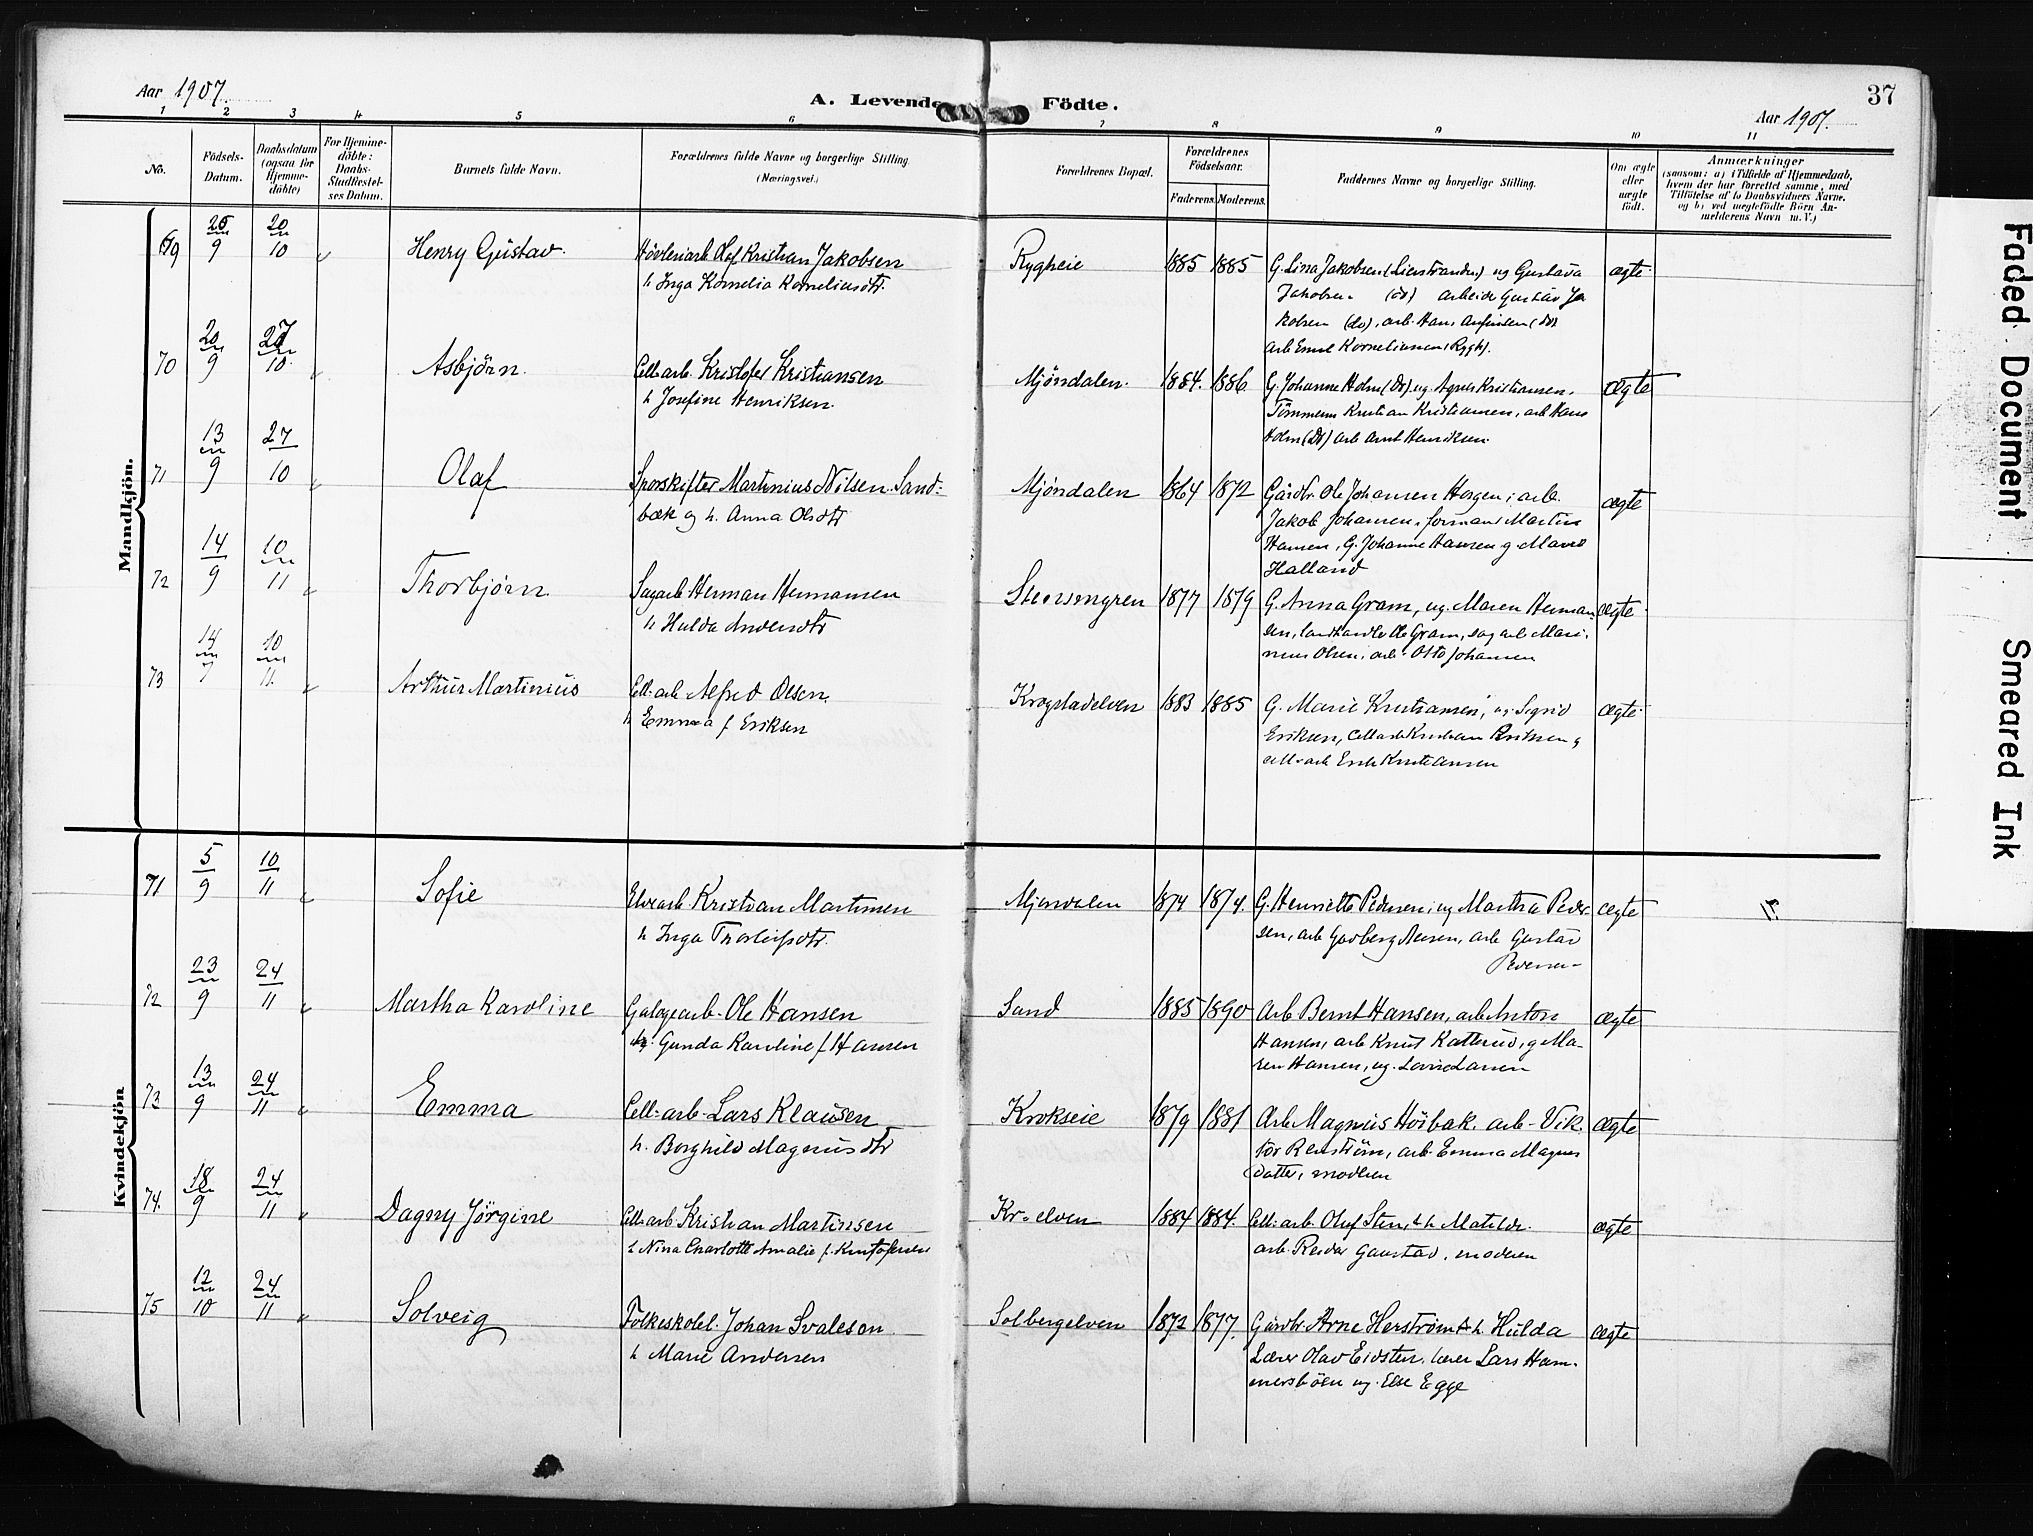 37
Aar 1907.
A. Levende Födte.
Aar 1907.
1 2 3 4 5 6 7 8 9 10 11
No.
Födsels-Datum.
Daabsdatum (ogsaa for Hjemme-döbte)
For Hjemme-döbte: Daabs-Stadfæstel-ses Datum.
Barnets fulde Navn.
Forældrenes fulde Navne og borgerlige Stilling. (Næringsvei.)
Forældrenes Bopæl.
Forældrenes Födselsaar.
Faderens. Moderens.
Faddernes Navne og borgerlige Stilling.
Om ægte eller uægte födt.
Anmærkninger
(saasom: a) i Tilfælde af Hjemmedaab,
hvem der har forrettet samme, med
Tilföielse af to Daabsvidners Navne.
og b) ved uægtefödte Börn An-
melderens Navn m. V.)
Mandkjön.
69 25/9 20/10 " Henry Gustav. Høvleriarb Olaf Kristian Jakobsen Rygheie 1885 1885 G. Lina Jakobsen (Lierstranden) ug Gustava ægte
h Inga Kornelia Korneliusdtr. Jakobsen (ds) arbeider Gustav Ja
kobsen (ds), arb. Hans (ds)
arb Emil Korneliussen (Rygh).
70 20/9 27/10 " Asbjörn. Cell arb. Kristofer Kristiansen Mjöndalen. 1884. 1886 G. Johanne Holm (Ds) ug. Agnes Kristiansen, ægte
h Josefine Henriksen. Tömmerm Kristian Kristiansen, arb Hans
Holm (Ds) arb Arnt Henriksen.
71 13/9 27/10 " Olaf Sporskifter Martinius Nilsen Sand- Mjöndalen 1864 1872 Gårdbr. Ole Johansen Horgen, arb. ægte
bæk og h. Anna Olsdtr Jakob Johansen, formand Martin
Hansen, G. Johanne Hansen g Maren
Halland
72 14/9 10/11 " Thorbjörn Sagarb Herman Hermansen Steensmyren 1877 1879 G. Anna Gram, ug. Maren Herman- ægte
h Hulda Andersdtr sen, landhandler Ole Gram, sag arb Mari-
nius Olsen, arb. Otto Johansen
73 14/9 10/11 " Arthur Martinius Cell. arb. Alfred Olsen. Krogstadelven 1883 1885 G. Marie Kristiansen, ug. Sigrid ægte
h Emma f Eriksen Eriksen, Cellarb Kristian Eriksen g
cell-arb Erik Kristiansen
Kvindekjön
71 5/9 10/11 " Sofie Elvearb. Kristian Martinsen Mjøndalen 1874 1874. G. Henriette Pedersen, ug Martha Peder- ægte
h Inga Thorleifsdtr. sen, arb arb Gustav
Pedersen
72 23/9 24/11 " Martha Karoline Galogearb. Ole Hansen Sand 1885 1890 Arb Bernt Hansen, arb Anton ægte
Gunda Karoline f Hansen Hansen, arb Knut Katterud, g Ma-
ren Hansen, ug. Lovise Larsen
73 13/9 24/11 " Emma Cell-arb. Lars Klausen Krokseie 1879 1881 Arb Magnus Höibak. arb- Vik- ægte
h. Borghild Magnusdtr tor Renström, arb. Emma Magnus
datter, moderen
74. 18/9 24/11 " Dagny Jörgine Cell. arb Kristian Martinsen Kr-elven 1884 1884. Cell. arb. Oluf Sten, & h Matilde. ægte
h Nina Charlotte Amalie f. Kristofersen arb. Reidar Gaustad, moderen
75 12/10 24/11 " Solveig Folkeskolel. Johan Svalesen. Solbergelven 1872 1877. Gårdbr. Arne Herström & h. Hulda ægte
h Marie Andersen Lærer Olav Eidsten, lærer Lars Ham-
mersböen ug. Else Egge
Faded Document
Smeared Ink